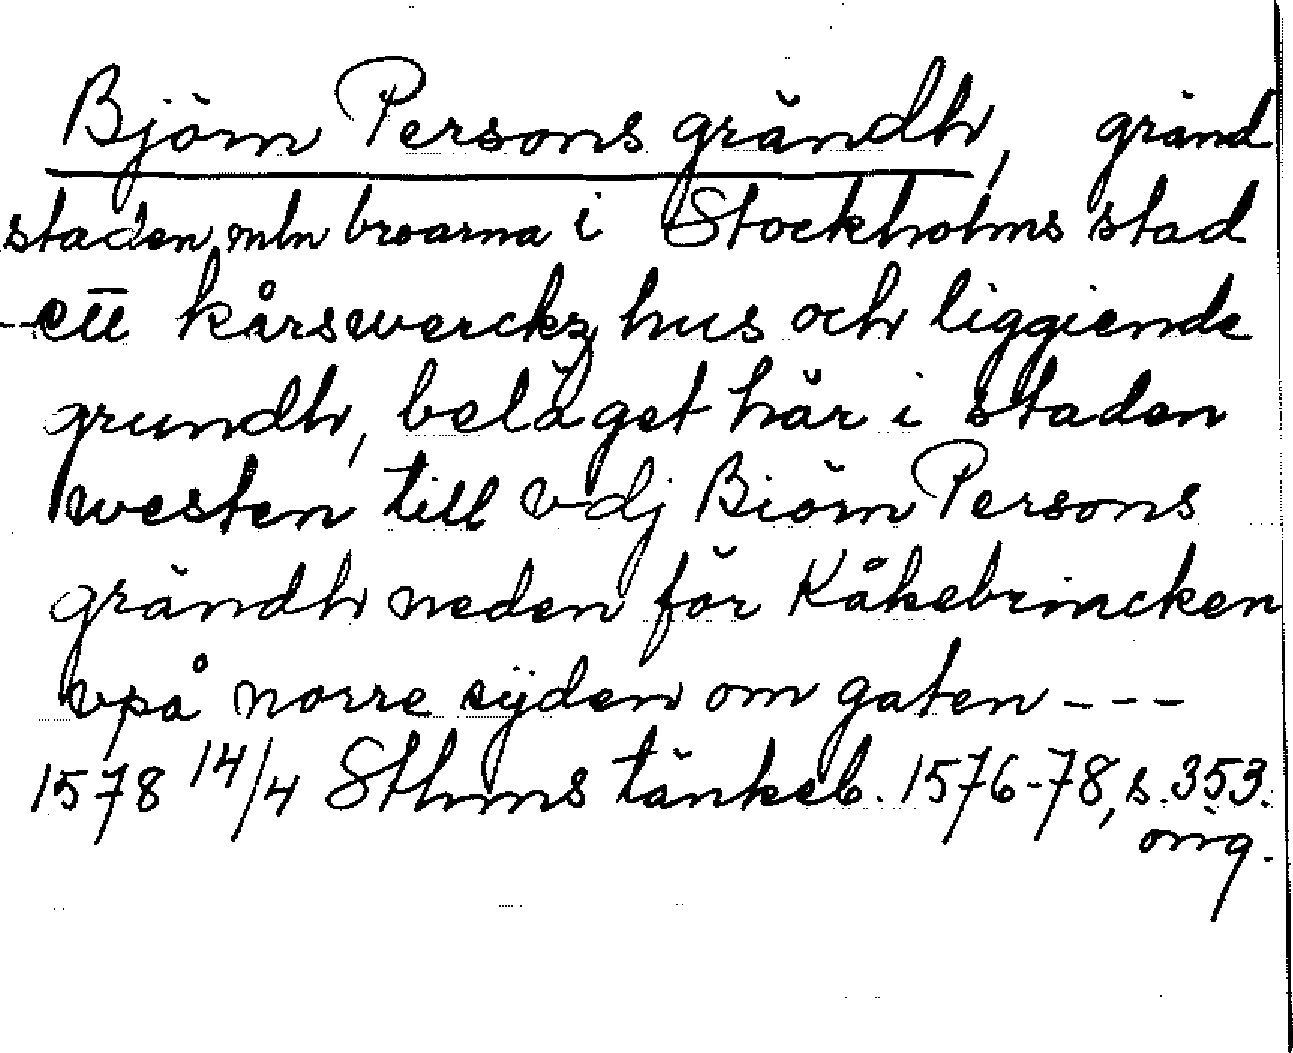 Björn Persons grändh, gränd
staden mln broarna i Stockholms stad
--ett kårswerckz hus och liggiende
grundh, beläget här i staden
westen till vdj Biörn Persons
grändh neden för Kåkebrincken
vpå norre sijden om gaten ---
1578 14/4 Sthms tänkeb. 1576-78, s. 353.
orig.